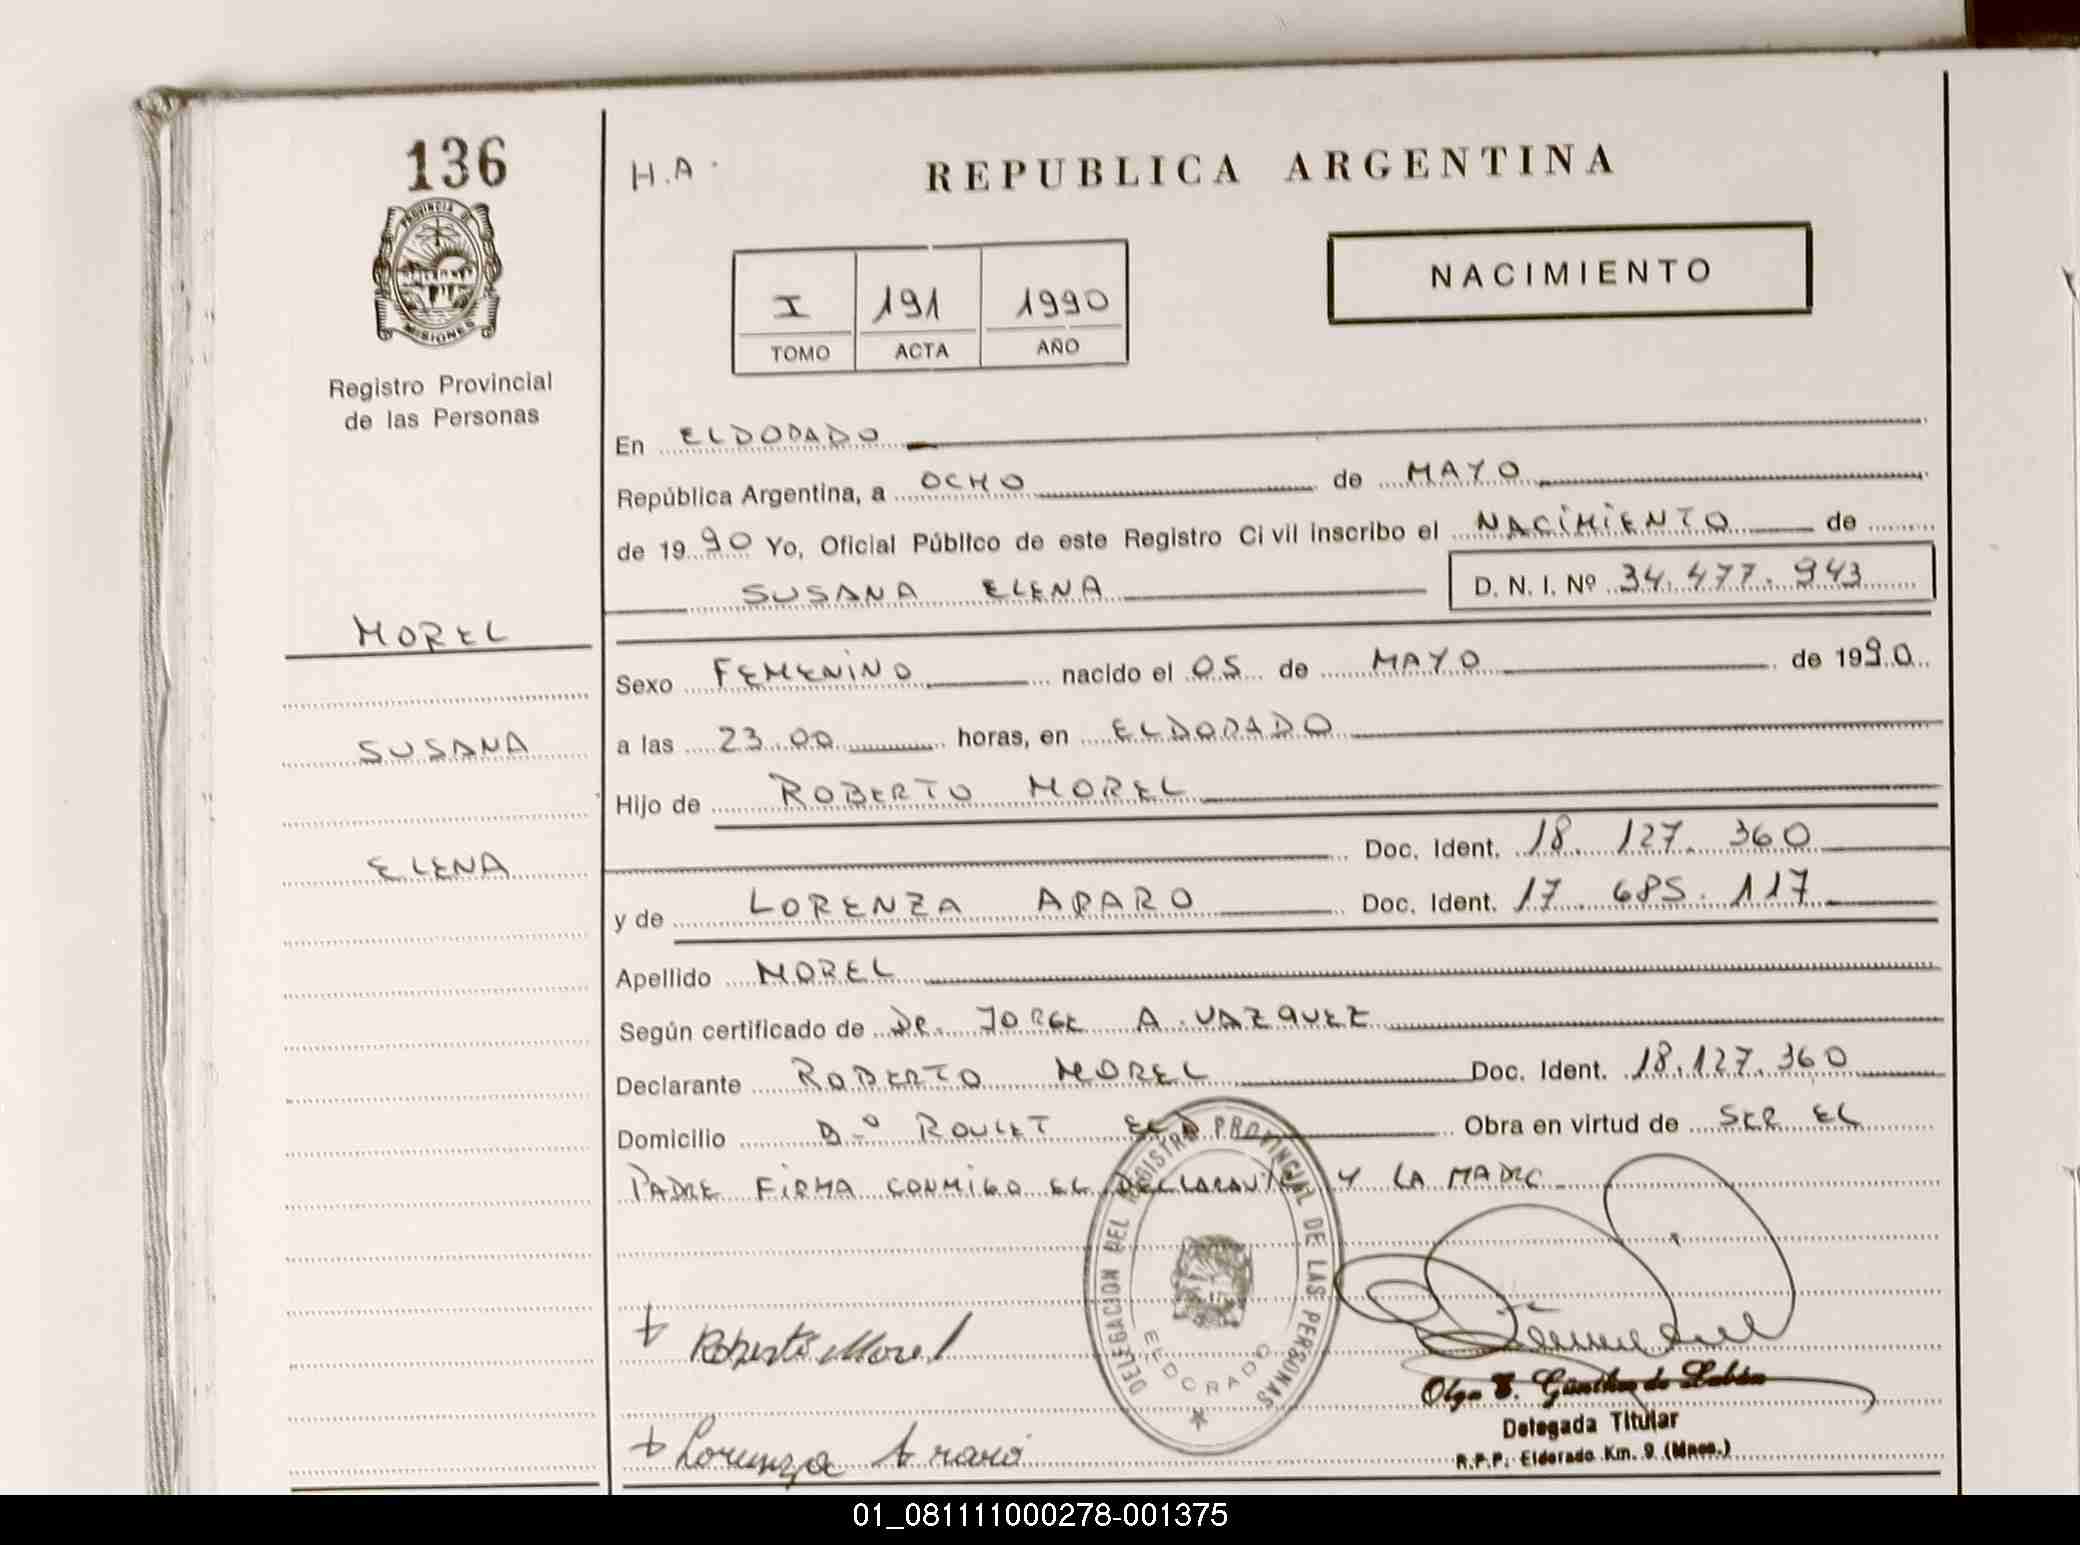 136
PROVINCIA DE
MISIONES
Registro Provincial
de las Personas
H.A.
REPUBLICA ARGENTINA
NACIMIENTO
I 191 1990
TOMO ACTA AÑO
En ELDORADO
República Argentina, a OCHO de MAYO
de 1990 Yo, Oficial Público de este Registro Civil inscribo el NACIMIENTO de
SUSANA ELENA D. N. I. Nº 34.477.943
MOREL
SUSANA
ELENA
Sexo FEMENINO nacido el 05 de MAYO de 1990
a las 23.00 horas, en ELDORADO
Hijo de ROBERTO MOREL
Doc. Ident. 18.127.360
y de LORENZA ARARO Doc. Ident. 17.685.117
Apellido MOREL
Según certificado de DR. JORGE A. VAZQUEZ
Declarante ROBERTO MOREL Doc. Ident. 18.127.360
Domicilio Bº ROULET ELD Obra en virtud de SER EL
PADRE FIRMA CONMIGO EL DECLARANTE Y LA MADRE
DELEGACION DEL REGISTRO PROVINCIAL DE LAS PERSONAS
ELDORADO
Roberto Morel
Olga Günther de
Delegada Titular
R.P.P. Eldorado Km. 9 (Mnes.)
Lorenza Araró
01_081111000278-001375